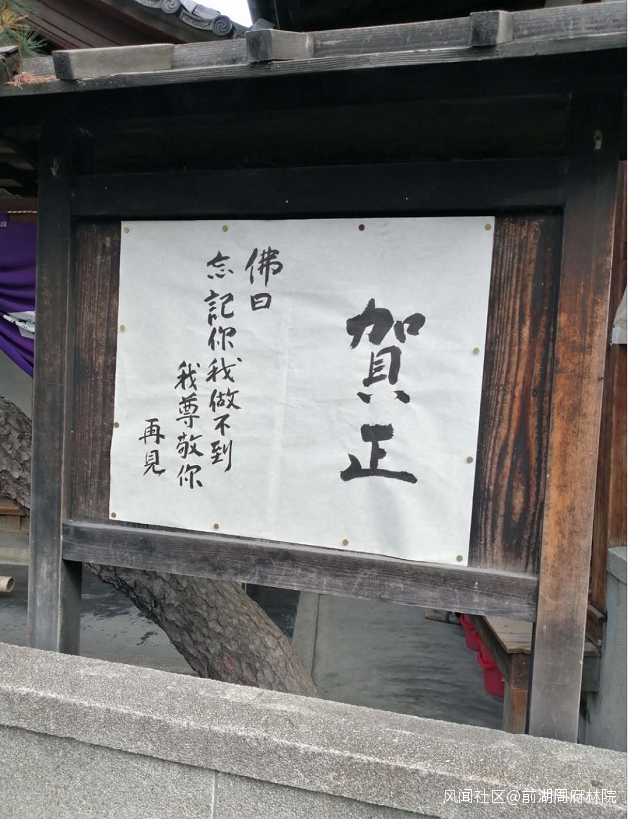 賀正
佛曰
忘記你我做不到
我尊敬你
再見
风闻社区@前湖周府林院